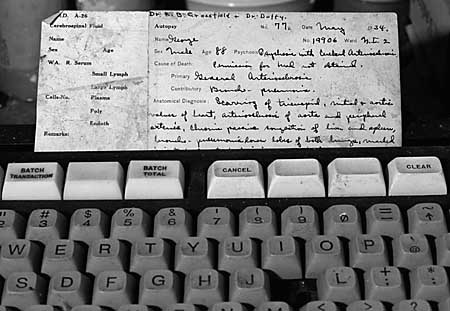 D. A-26
Cerebrospinal Fluid
Name
Sex Age
WA. R. Serum
Small Lymph
Large Lymph
Cells-No. Plasma
Poly
Endoth
Remarks:
Dr. Duffy.
Autopsy No. 77. Date May 34.
Name George No. 19906 Ward
Sex Male Age 88 Psychosis Psychosis with Cerebral Arteriosclerosis
Cause of Death: Permission for head not obtained.
Primary General Arteriosclerosis
Contributory Broncho-pneumonia.
Anatomical Diagnosis: Scarring of tricuspid, mitral & aortic
valves of heart, arteriosclerosis of aorta and peripheral
arteries, chronic passive congestion of liver and spleen,
broncho-pneumonia lower lobes of both lungs,
BATCH TRANSACTION
BATCH TOTAL
CANCEL
CLEAR
" # $ % & ' ( ) = ~
2 3 4 5 6 7 8 9 0 ^
W E R T Y U I O P @
S D F G H J L + *
; :
< > ?